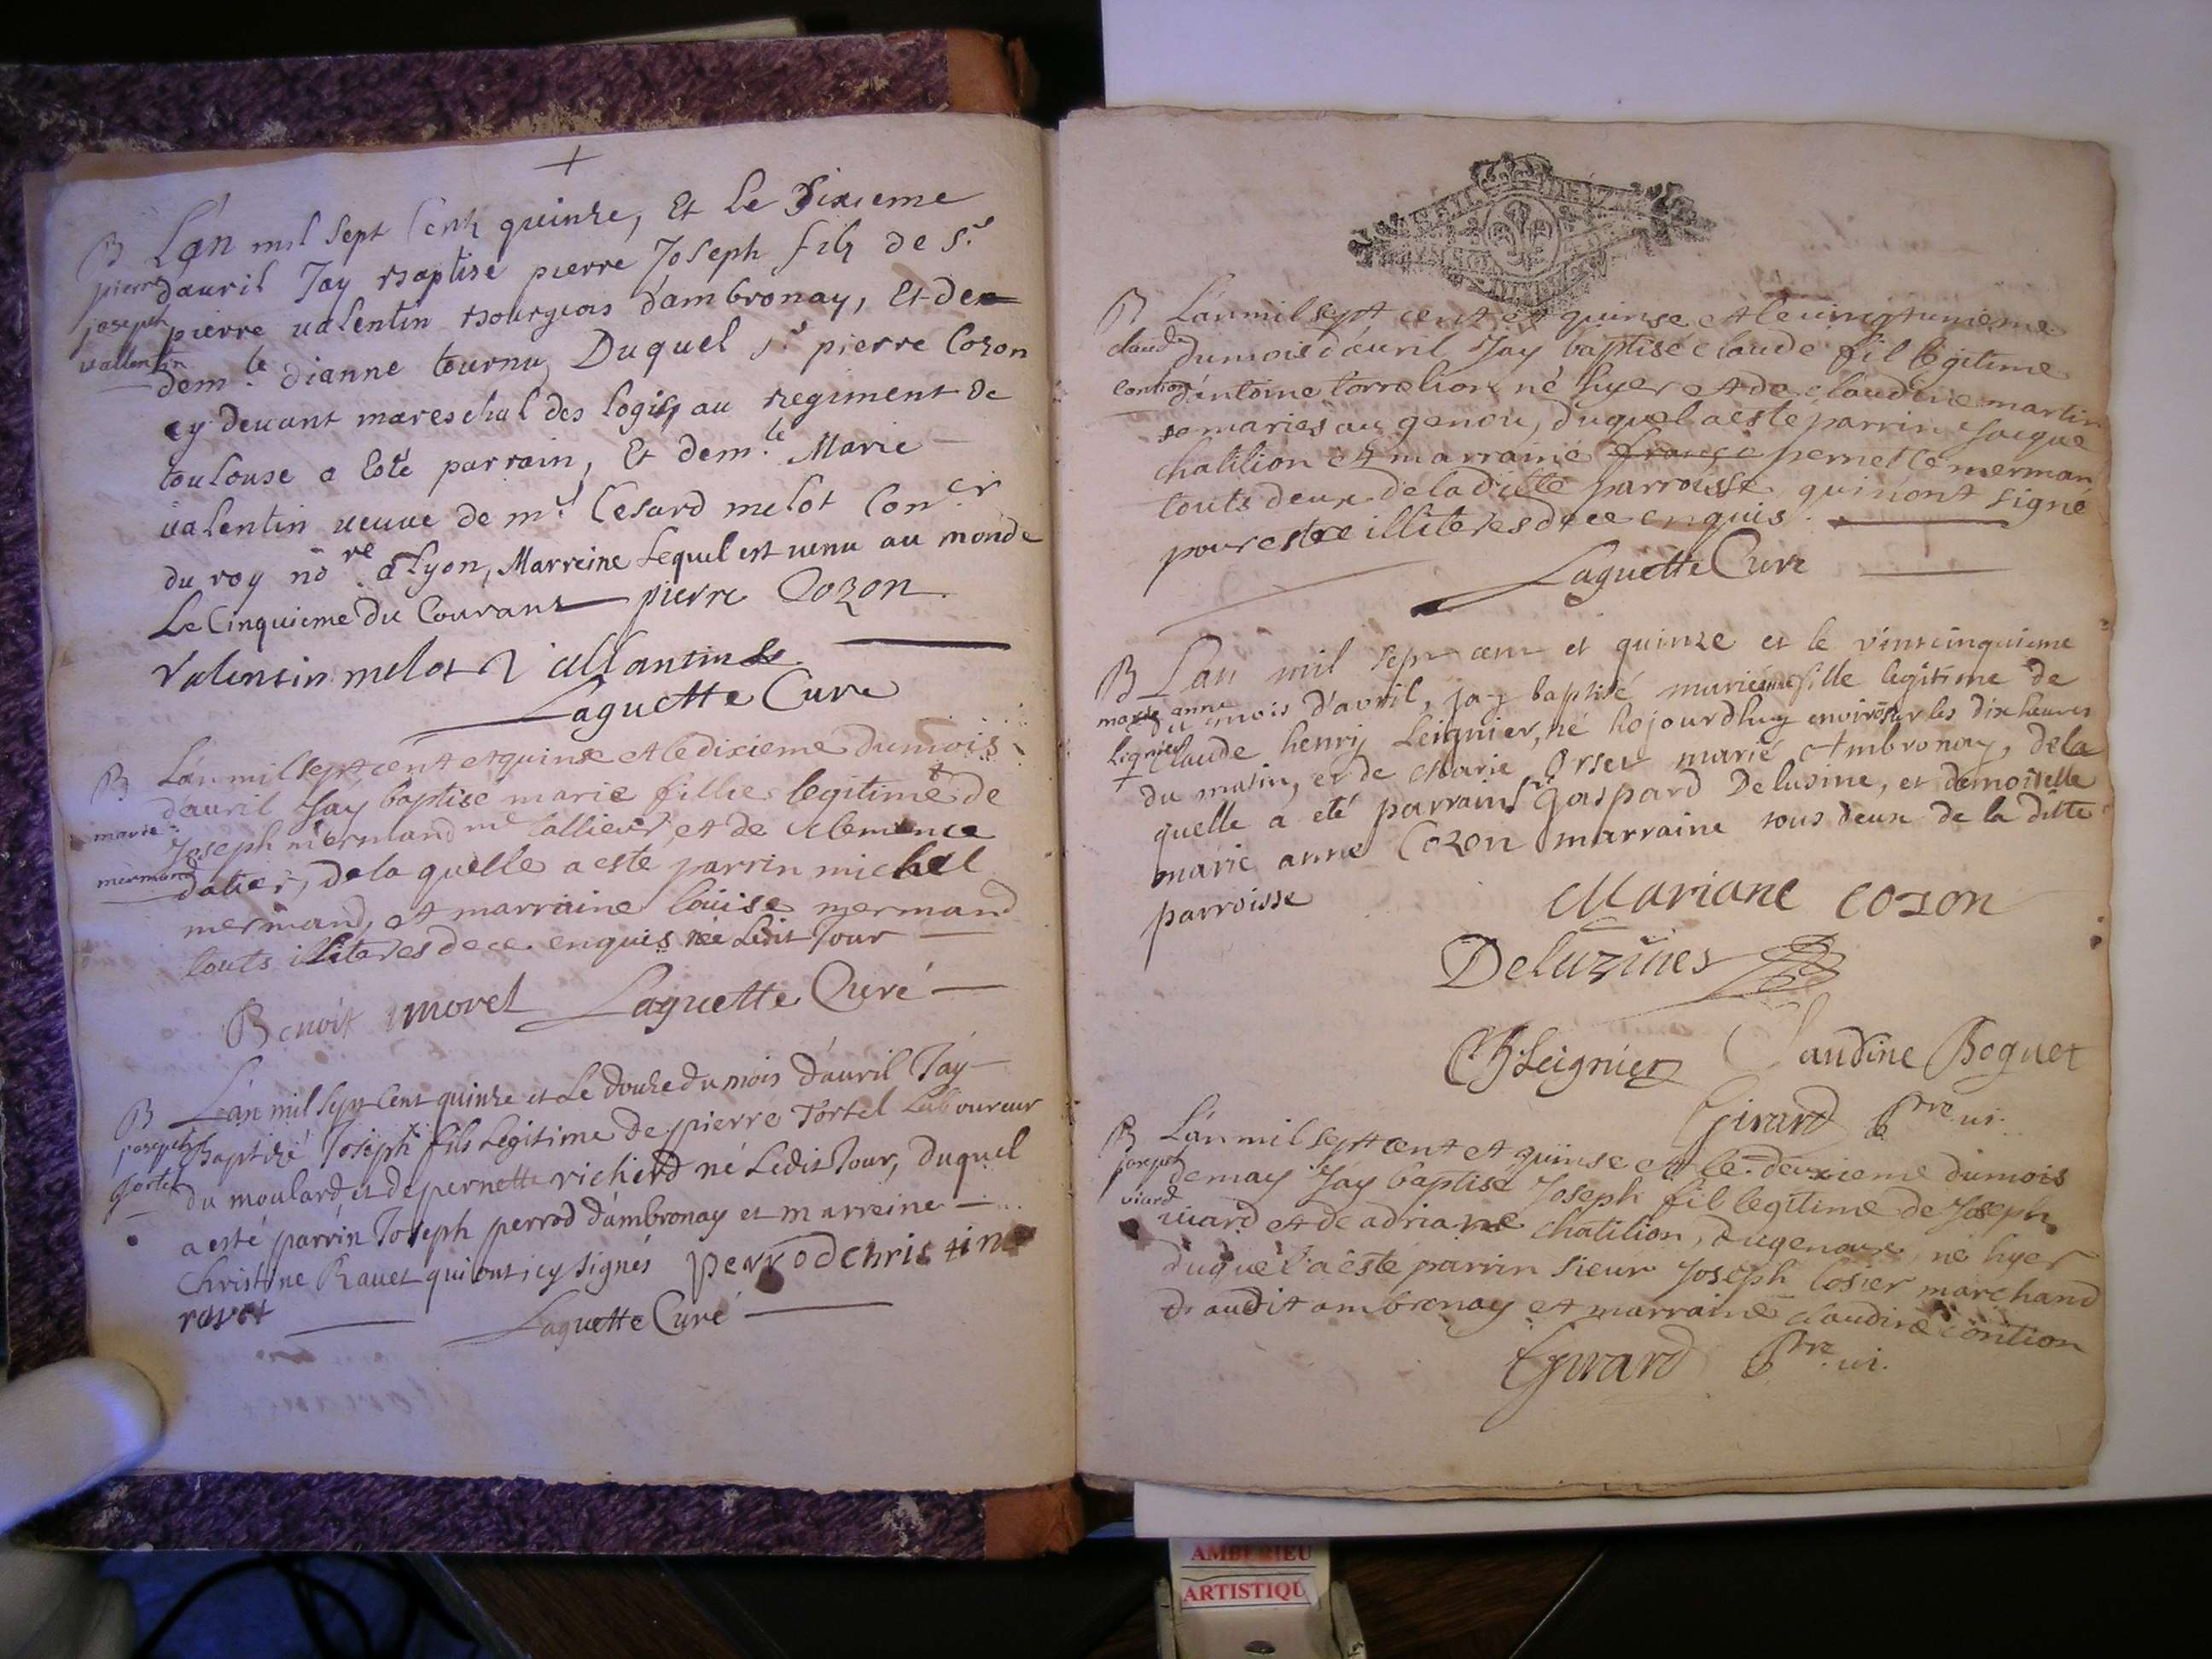 B
pierre
joseph
vallentin
Lan mil sept Cent quinze, Et le Dixieme
dauril Jay Baptisé pierre Joseph fils de Sr.
pierre ualentin Bourgeois dambronay, Et de
demle. dianne tournu, Duquel sr. pierre Cozon
cy deuant mareschal des logis au regiment de
toulouse a Esté parrain, Et demle. Marie
ualentin ueuue de mr. Cesard melot Concr
du roy nore. a Lyon, Marreine Lequel est uenu au monde
Le Cinquieme du Courant pierre Cozon
Valentin melot Vallantin
Laguette Cure
B
marie
mermand
Lan mil sept cent et quinse et le dixieme du mois
dauril Jay baptisé marie fillie legitime de
Joseph mermand me tallieur, et de clemence
datier, de la quelle a este parrin michel
mermand, et marraine louise mermand
touts illiteres de ce enquis née Ledit Jour
Benoit morel Laguette Curé
B
joseph
tortel
Lan mil Sept Cent quinze et Le douze du mois dauril Jay
Baptizé Joseph fils Legitime de pierre Tortel Laboureur
du moulard et de pernette richerd né Ledit Jour, duquel
a esté parrin Joseph perrod dambronay et marreine
Christine Rauet qui ont icy signés perrod christine
ravet
Laguette Curé
B
claude
Lan mil sept cent et quinse et le uingtunieme
du mois dauril Jay baptisé claude fil legitime
dentoine né hyer et de claudine martin
mariés au genou, duquel a este parrin Jacque
chatilion et marraine france pernette merman
touts deux de la ditte parroisse qui n'ont signé
pour estre illiteres de ce enquis.
Laguette Cure
B
marie anne
Lignier
Lan mil sept cent et quinze et le vintcinquieme
du mois d'avril, jay baptisé marieanne fille legitime de
Claude henry Leignier, né hojourdhuy environ sur les dix heures
du matin, et de Marie Orset marié Ambronay, de la
quelle a eté parrain Sr Gaspard Delusine, et demoiselle
marie anne Cozon marraine tous deux de la ditte
parroisse
Mariane cozon
Deluzines
Ch Leignier Claudine Boguet
Girard Ptre ui.
B
joseph
uiard
Lan mil sept cent et quinse et le deuxieme du mois
de may Jay baptisé Joseph fil legitime de Joseph
uiard et de adriane chatilion, du genoux, né hyer
duquel a este parrin sieur Joseph losier marchand
audit ambronay et marraine claudine contion
Girard Ptre ui.
AMBERIEU
ARTISTIQU